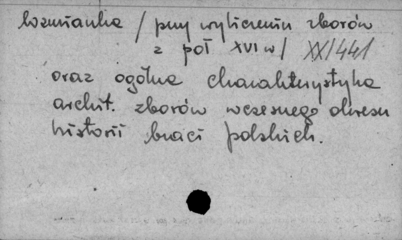 Kozmianka / przy wyliczeniu zborów
z poł XVI w / XX/441
oraz ogólna charakterystyka
archit. zborów wczesnego okresu
historii braci polskich.